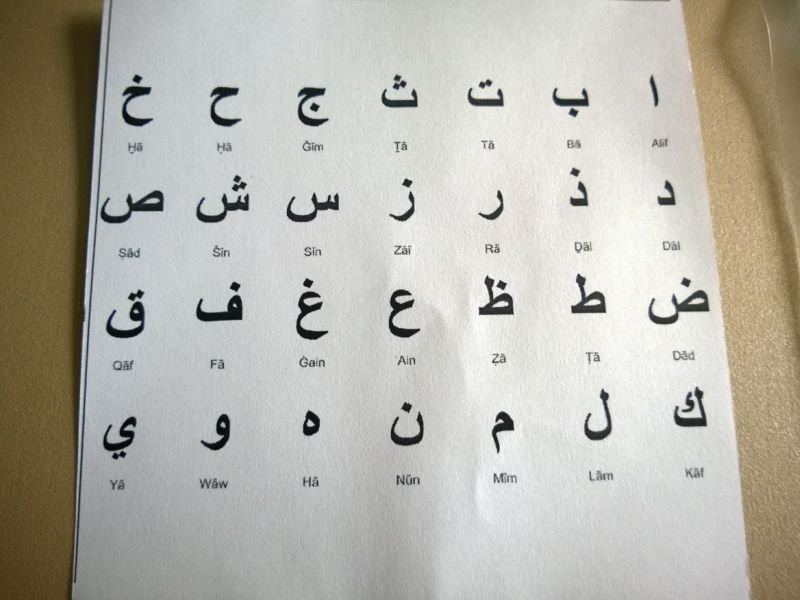 ا ب ت ث ج ح خ
Alif Bā Tā Ṯā Ǧīm Ḥā Ḫā
د ذ ر ز س ش ص
Dāl Ḏāl Rā Zāī Sīn Šīn Ṣād
ض ط ظ ع غ ف ق
Dād Ṭā Ẓā ʿAin Ġain Fā Qāf
ك ل م ن ه و ي
Kāf Lām Mīm Nūn Hā Wāw Yā